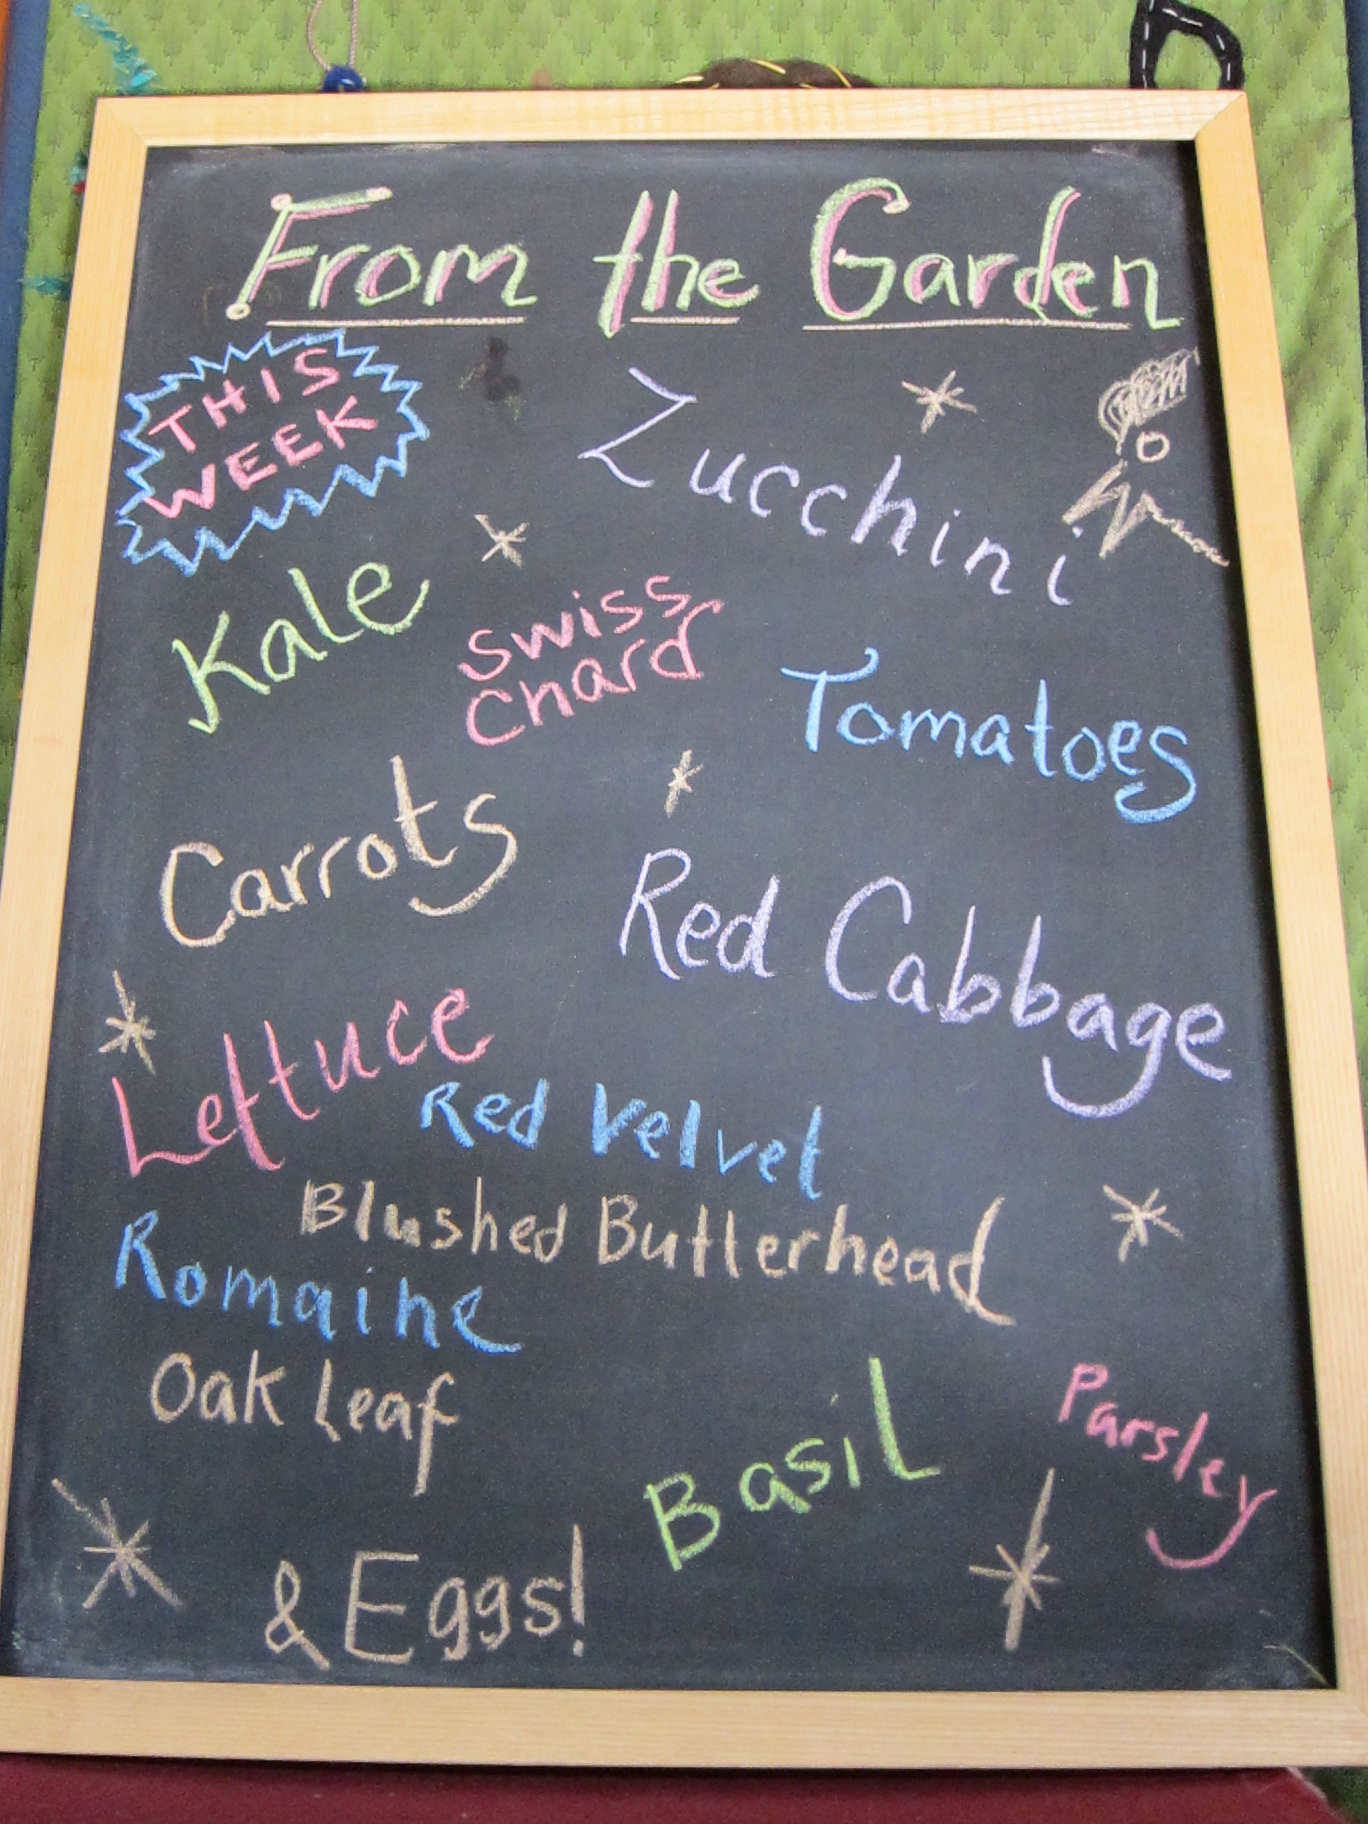 From the Garden
THIS
WEEK
Zucchini
Kale
Swiss
Chard
Tomatoes
Carrots
Red Cabbage
Lettuce
Red Velvet
Blushed Butterhead
Romaine
Oak Leaf
Basil
Parsley
& Eggs!